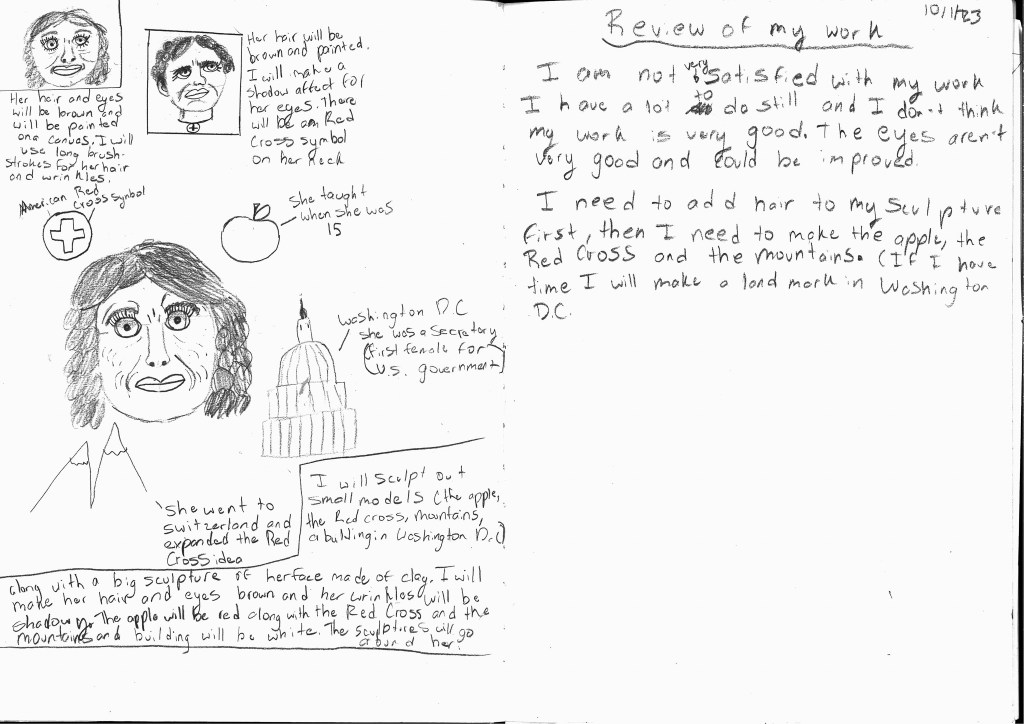 Her hair and eyes
will be brown and
will be painted
on a canvas. I will
use long brush-
strokes for her hair
and wrinkles.
Her hair will be
brown and painted.
I will make a
shadow affect for
her eyes. There
will be an Red
Cross symbol
on her neck
American Red
Cross symbol
she taught
when she was
15
Washington D.C
she was a secretary
(first female for
U.S. government)
she went to
switzerland and
expanded the Red
Cross idea
I will sculpt out
small models (the apple,
the Red cross, mountains,
a building in Washington D.C)
along with a big sculpture of her face made of clay. I will
make her hair and eyes brown and her wrinkles will be
shadowy. The apple will be red along with the Red Cross and the
mountains and building will be white. The sculptures will go
around her.
10/1/23
Review of my work
I am not very satisfied with my work
I have a lot to do still and I don't think
my work is very good. The eyes aren't
very good and could be improved.
I need to add hair to my sculpture
first, then I need to make the apple, the
Red Cross and the mountains. (If I have
time I will make a land mark in Washington
D.C.